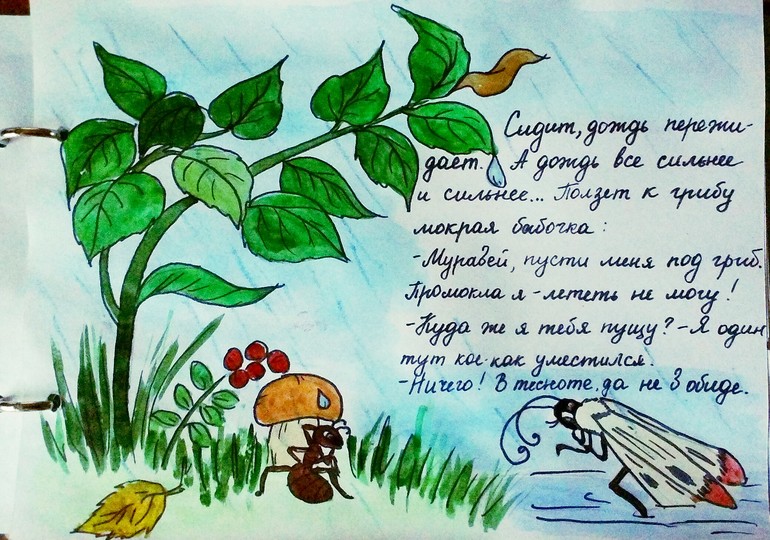 Сидит, дождь пережи-
дает. А дождь все сильнее
и сильнее... Ползет к грибу
мокрая бабочка:
-Муравей, пусти меня под гриб.
Промокла я - лететь не могу!
-Куда же я тебя пущу? - Я один
тут кое-как уместился.
-Ничего! В тесноте, да не в обиде.